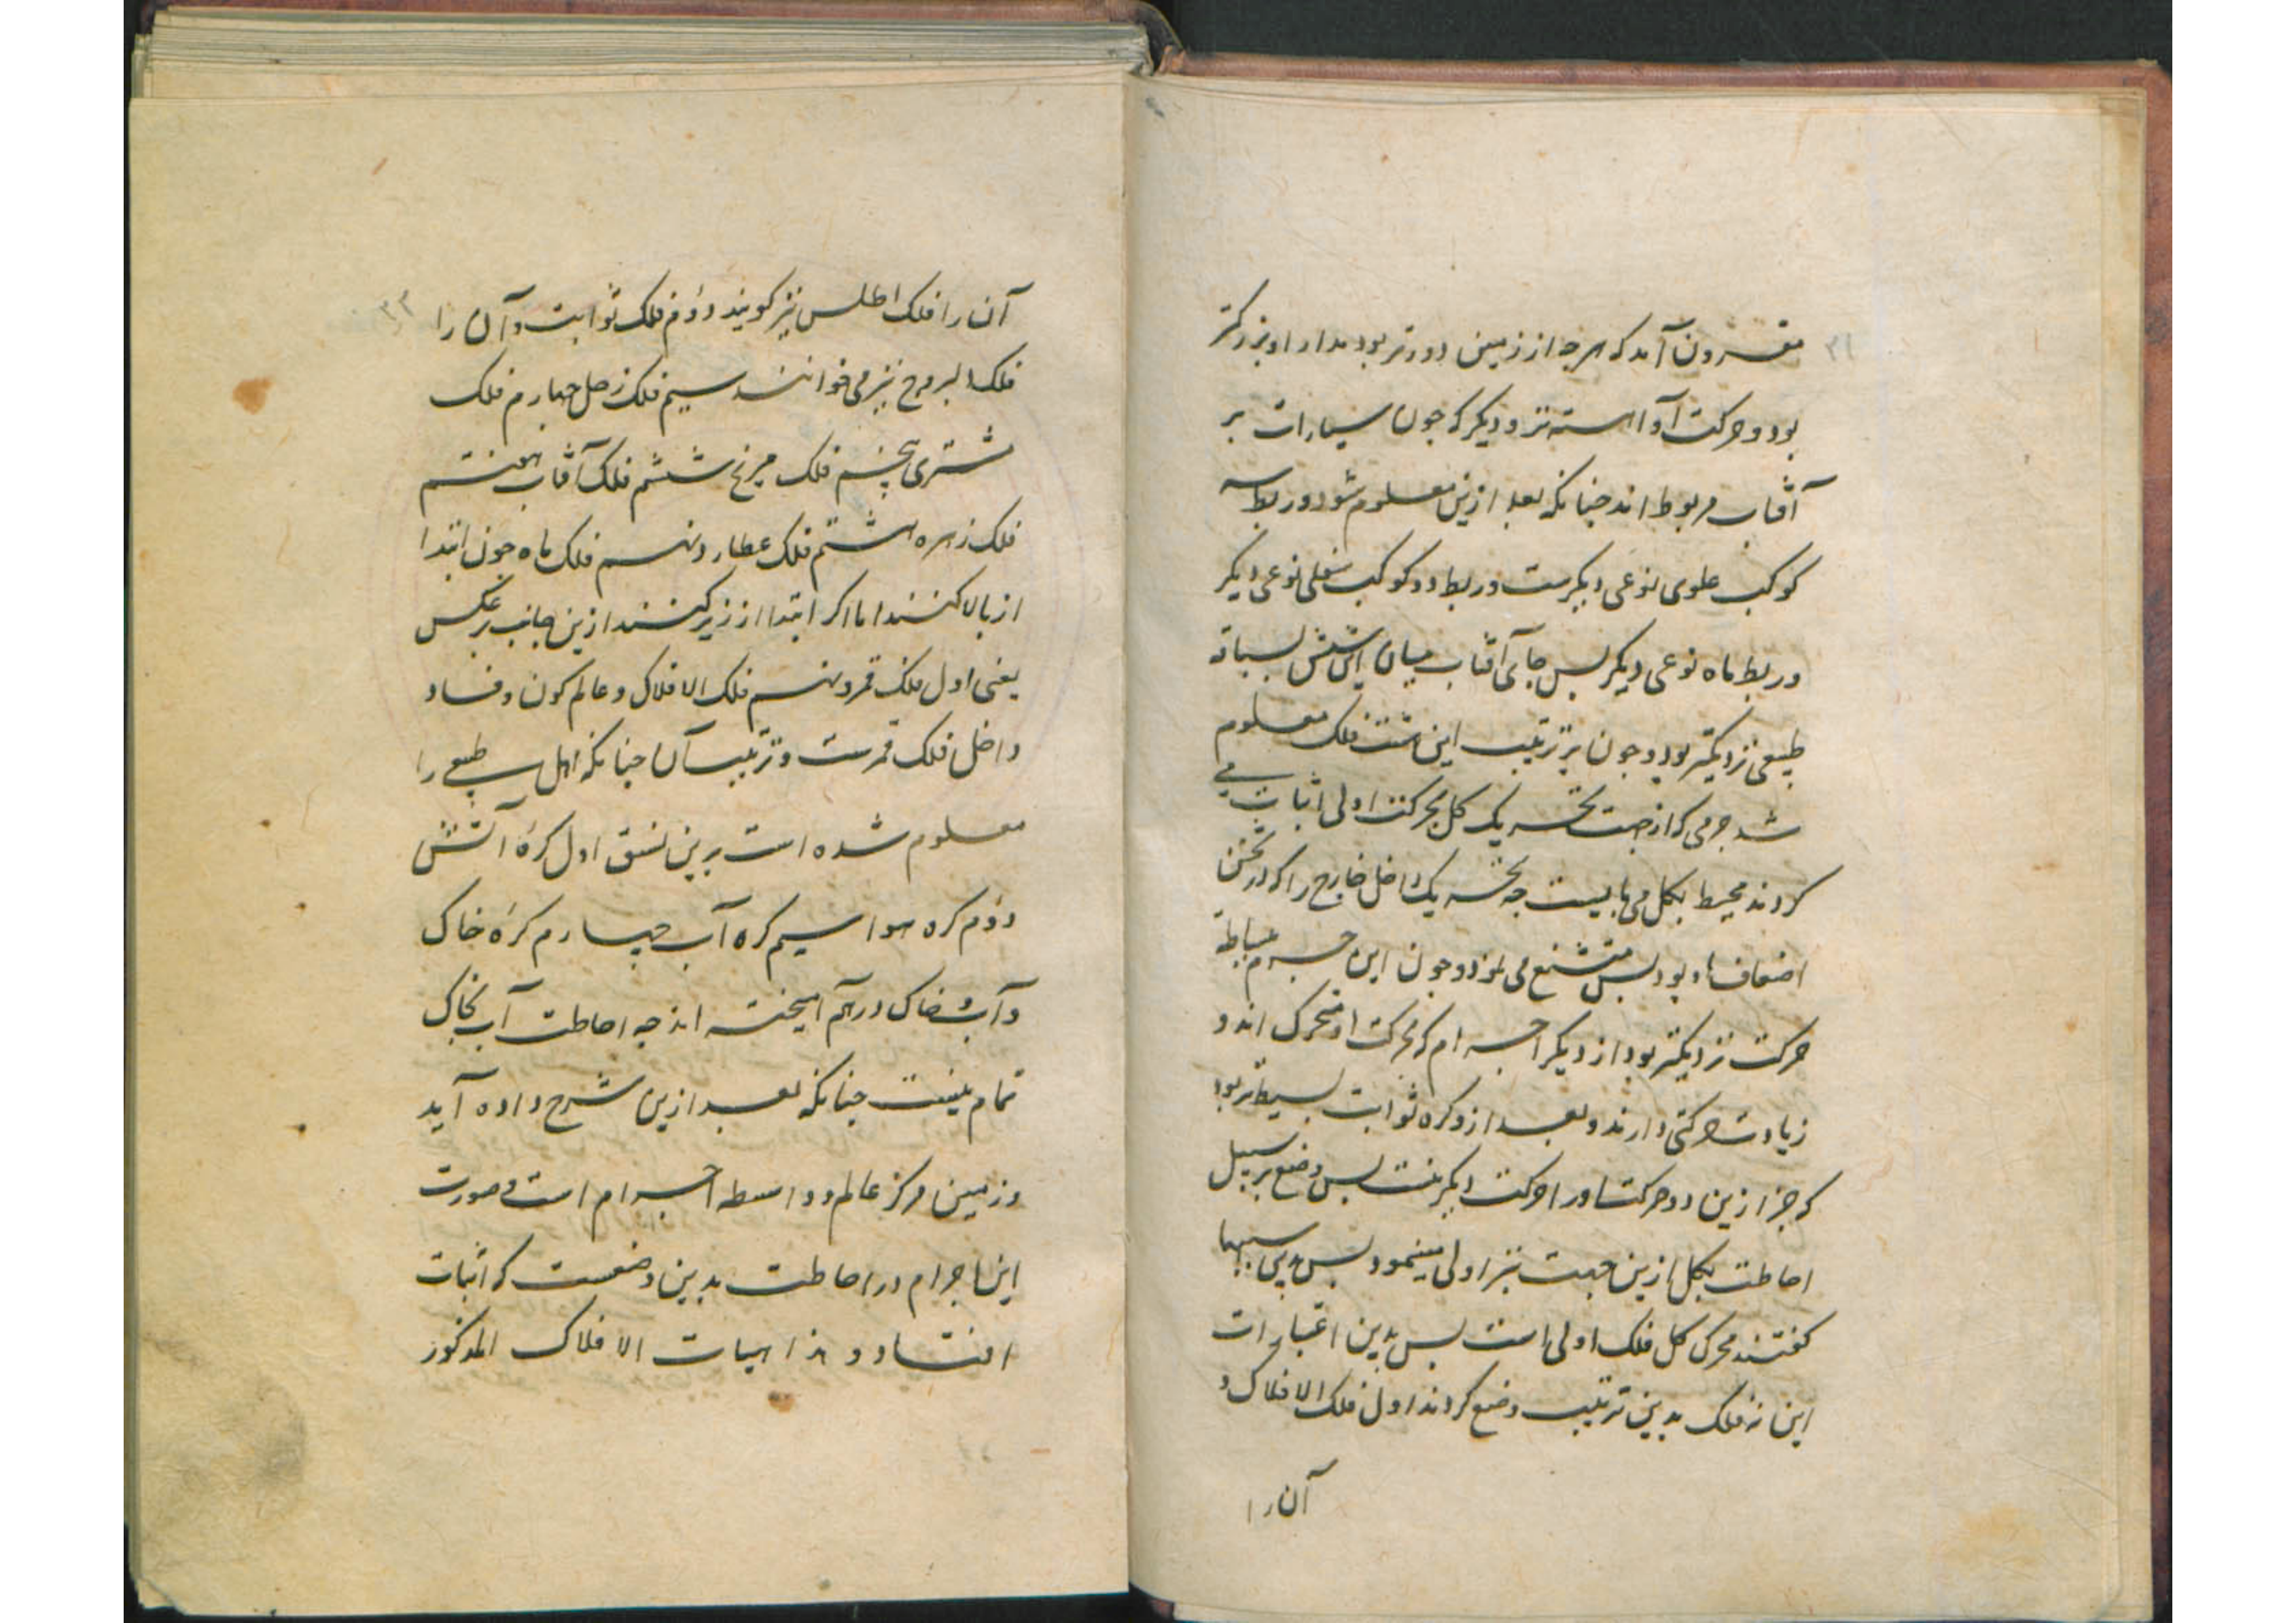 ۳۲
مقرون آمد که هرچه از زمین دورتر بود مدار او بزرکتر
بود و حرکت او آهسته تر و دیکر که چون سیارات بر
آفتاب مربوط اند چنانکه بعد ازین معلوم شود و ربط سه
کوکب علوی نوعی دیکرست و ربط دو کوکب سفلی نوعی دیکر
و ربط ماه نوعی دیکر بس جای آفتاب میان این شش بسیاقه
طبیعی نزدیکتر بود و چون بر ترتیب این هشت فلک معلوم
شد جرمی که از جهت تحریک کل بحرکت اولی اثبات می
کردند محیط بکل می بایست چه تحریک داخل خارج را که در ثخن
اضعاف او بود بس متشنع می نمود و چون این جرم
حرکت نزدیکتر بود از دیکر اجرام که بحرکت او متحرک اند و
زیادت حرکتی دارند و بعد ازو کره ثوابت بسیطتر بود
که جز ازین دو حرکت اورا حرکت دیکر نیست بس وضع بر سبیل
احاطت بکل ازین جهت نیز اولی مینمود بس بدین سببها
کفتند محرک کل فلک اولی است بس بدین اعتبارات
این نه فلک بدین ترتیب وضع کردند اول فلک الافلاک و
آن را
۳۳
آن را فلک اطلس نیز کویند دوم فلک ثوابت و آن را
فلک البروج نیز می خوانند سیم فلک زحل چهارم فلک
مشتری پنجم فلک مریخ ششم فلک آفتاب هفتم
فلک زهره هشتم فلک عطارد نهم فلک ماه چون ابتدا
از بالا کنند اما اکر ابتدا از زیر کنند ازین جانب بر عکس
یعنی اول فلک قمر و نهم فلک الافلاک و عالم کون و فساد
داخل فلک قمرست و ترتیب آن چنانکه اهل طبیعی را
معلوم شده است برین نسق اول کره آتش
دوم کره هوا سیم کره آب چهارم کره خاک
و آب و خاک درهم آمیخته اند چه احاطت آب بخاک
تمام نیست چنانکه بعد ازین شرح داده آید
و زمین مرکز عالم و واسطه اجرام است و صورت
این اجرام در احاطت بدین وضعست که اثبات
افتاد و هذا هیات الافلاک المذکور